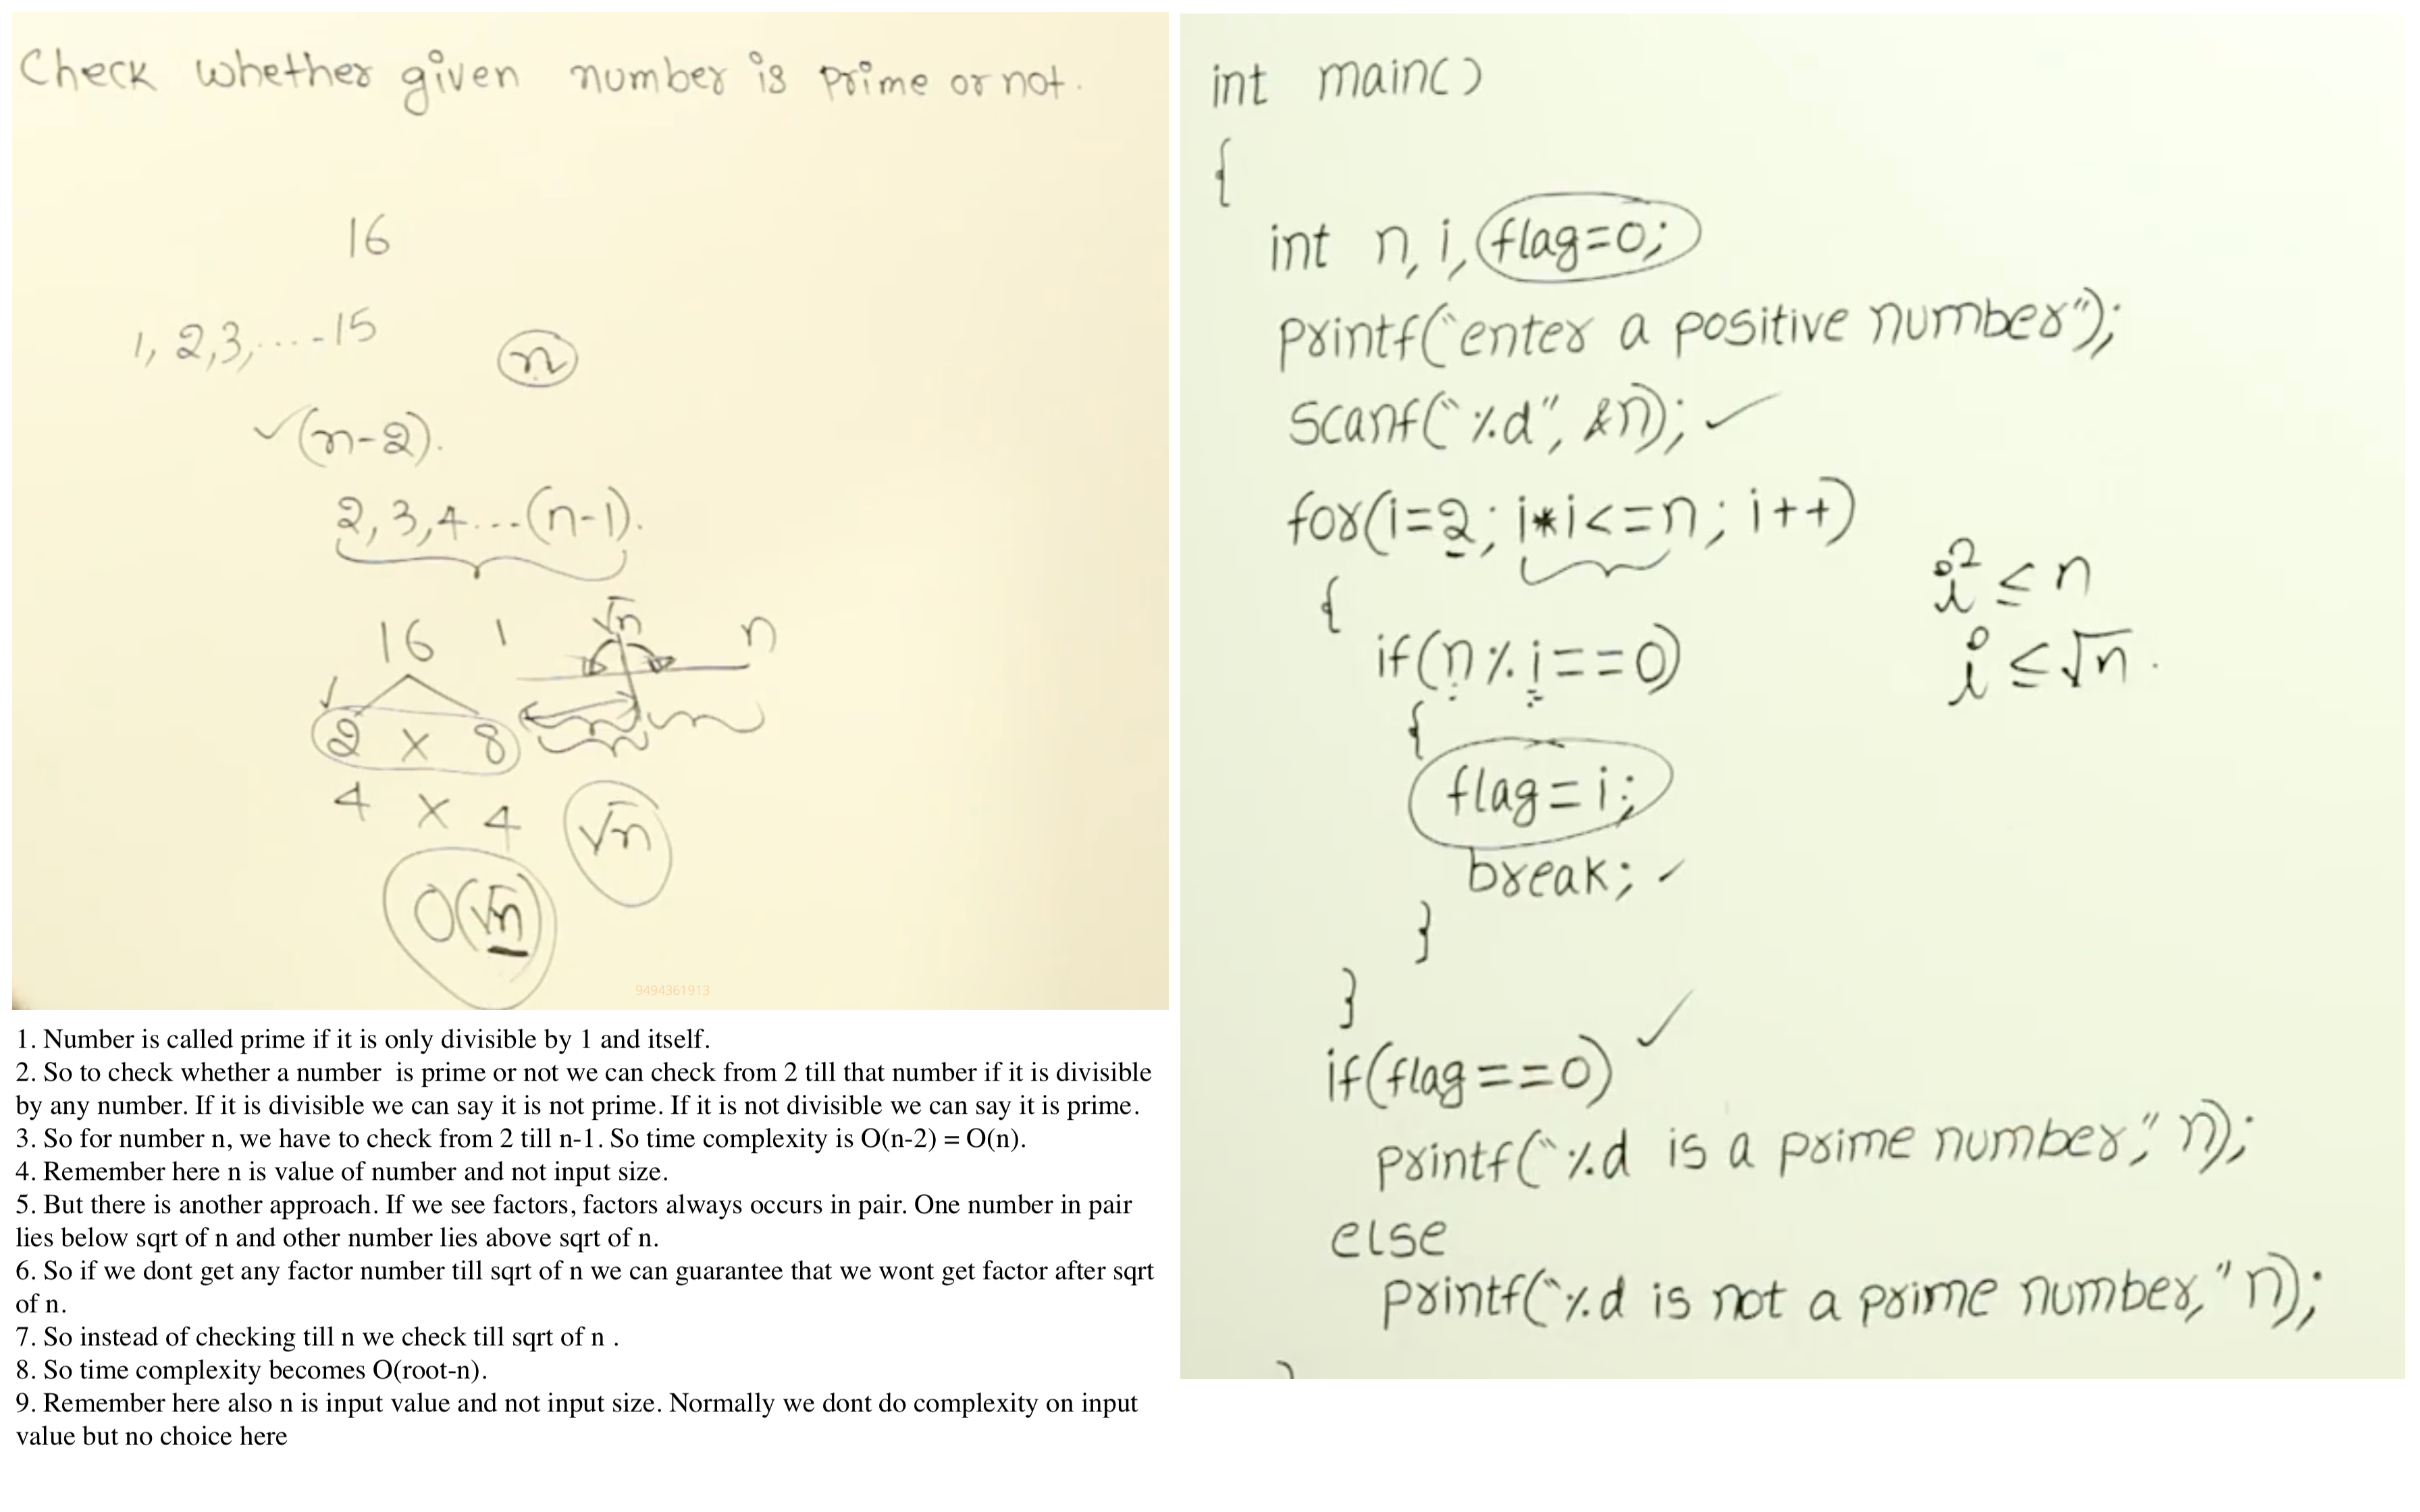 Check whether given number is prime or not.
16
1, 2,3,....-15
n
(n-2).
2,3,4...(n-1).
16 1 √n n
2 x 8
4 x 4
√n
O(√n)
9494361913
1. Number is called prime if it is only divisible by 1 and itself.
2. So to check whether a number  is prime or not we can check from 2 till that number if it is divisible
by any number. If it is divisible we can say it is not prime. If it is not divisible we can say it is prime.
3. So for number n, we have to check from 2 till n-1. So time complexity is O(n-2) = O(n).
4. Remember here n is value of number and not input size.
5. But there is another approach. If we see factors, factors always occurs in pair. One number in pair
lies below sqrt of n and other number lies above sqrt of n.
6. So if we dont get any factor number till sqrt of n we can guarantee that we wont get factor after sqrt
of n.
7. So instead of checking till n we check till sqrt of n .
8. So time complexity becomes O(root-n).
9. Remember here also n is input value and not input size. Normally we dont do complexity on input
value but no choice here
int main()
{
int n, i, flag=0;
printf("enter a positive number");
scanf("%d", &n);
for(i=2; i*i<=n; i++)
{
i² ≤ n
if(n%i==0)
i ≤ √n.
{
flag=i;
break;
}
}
if(flag==0)
printf("%d is a prime number," n);
else
printf("%d is not a prime number," n);
}